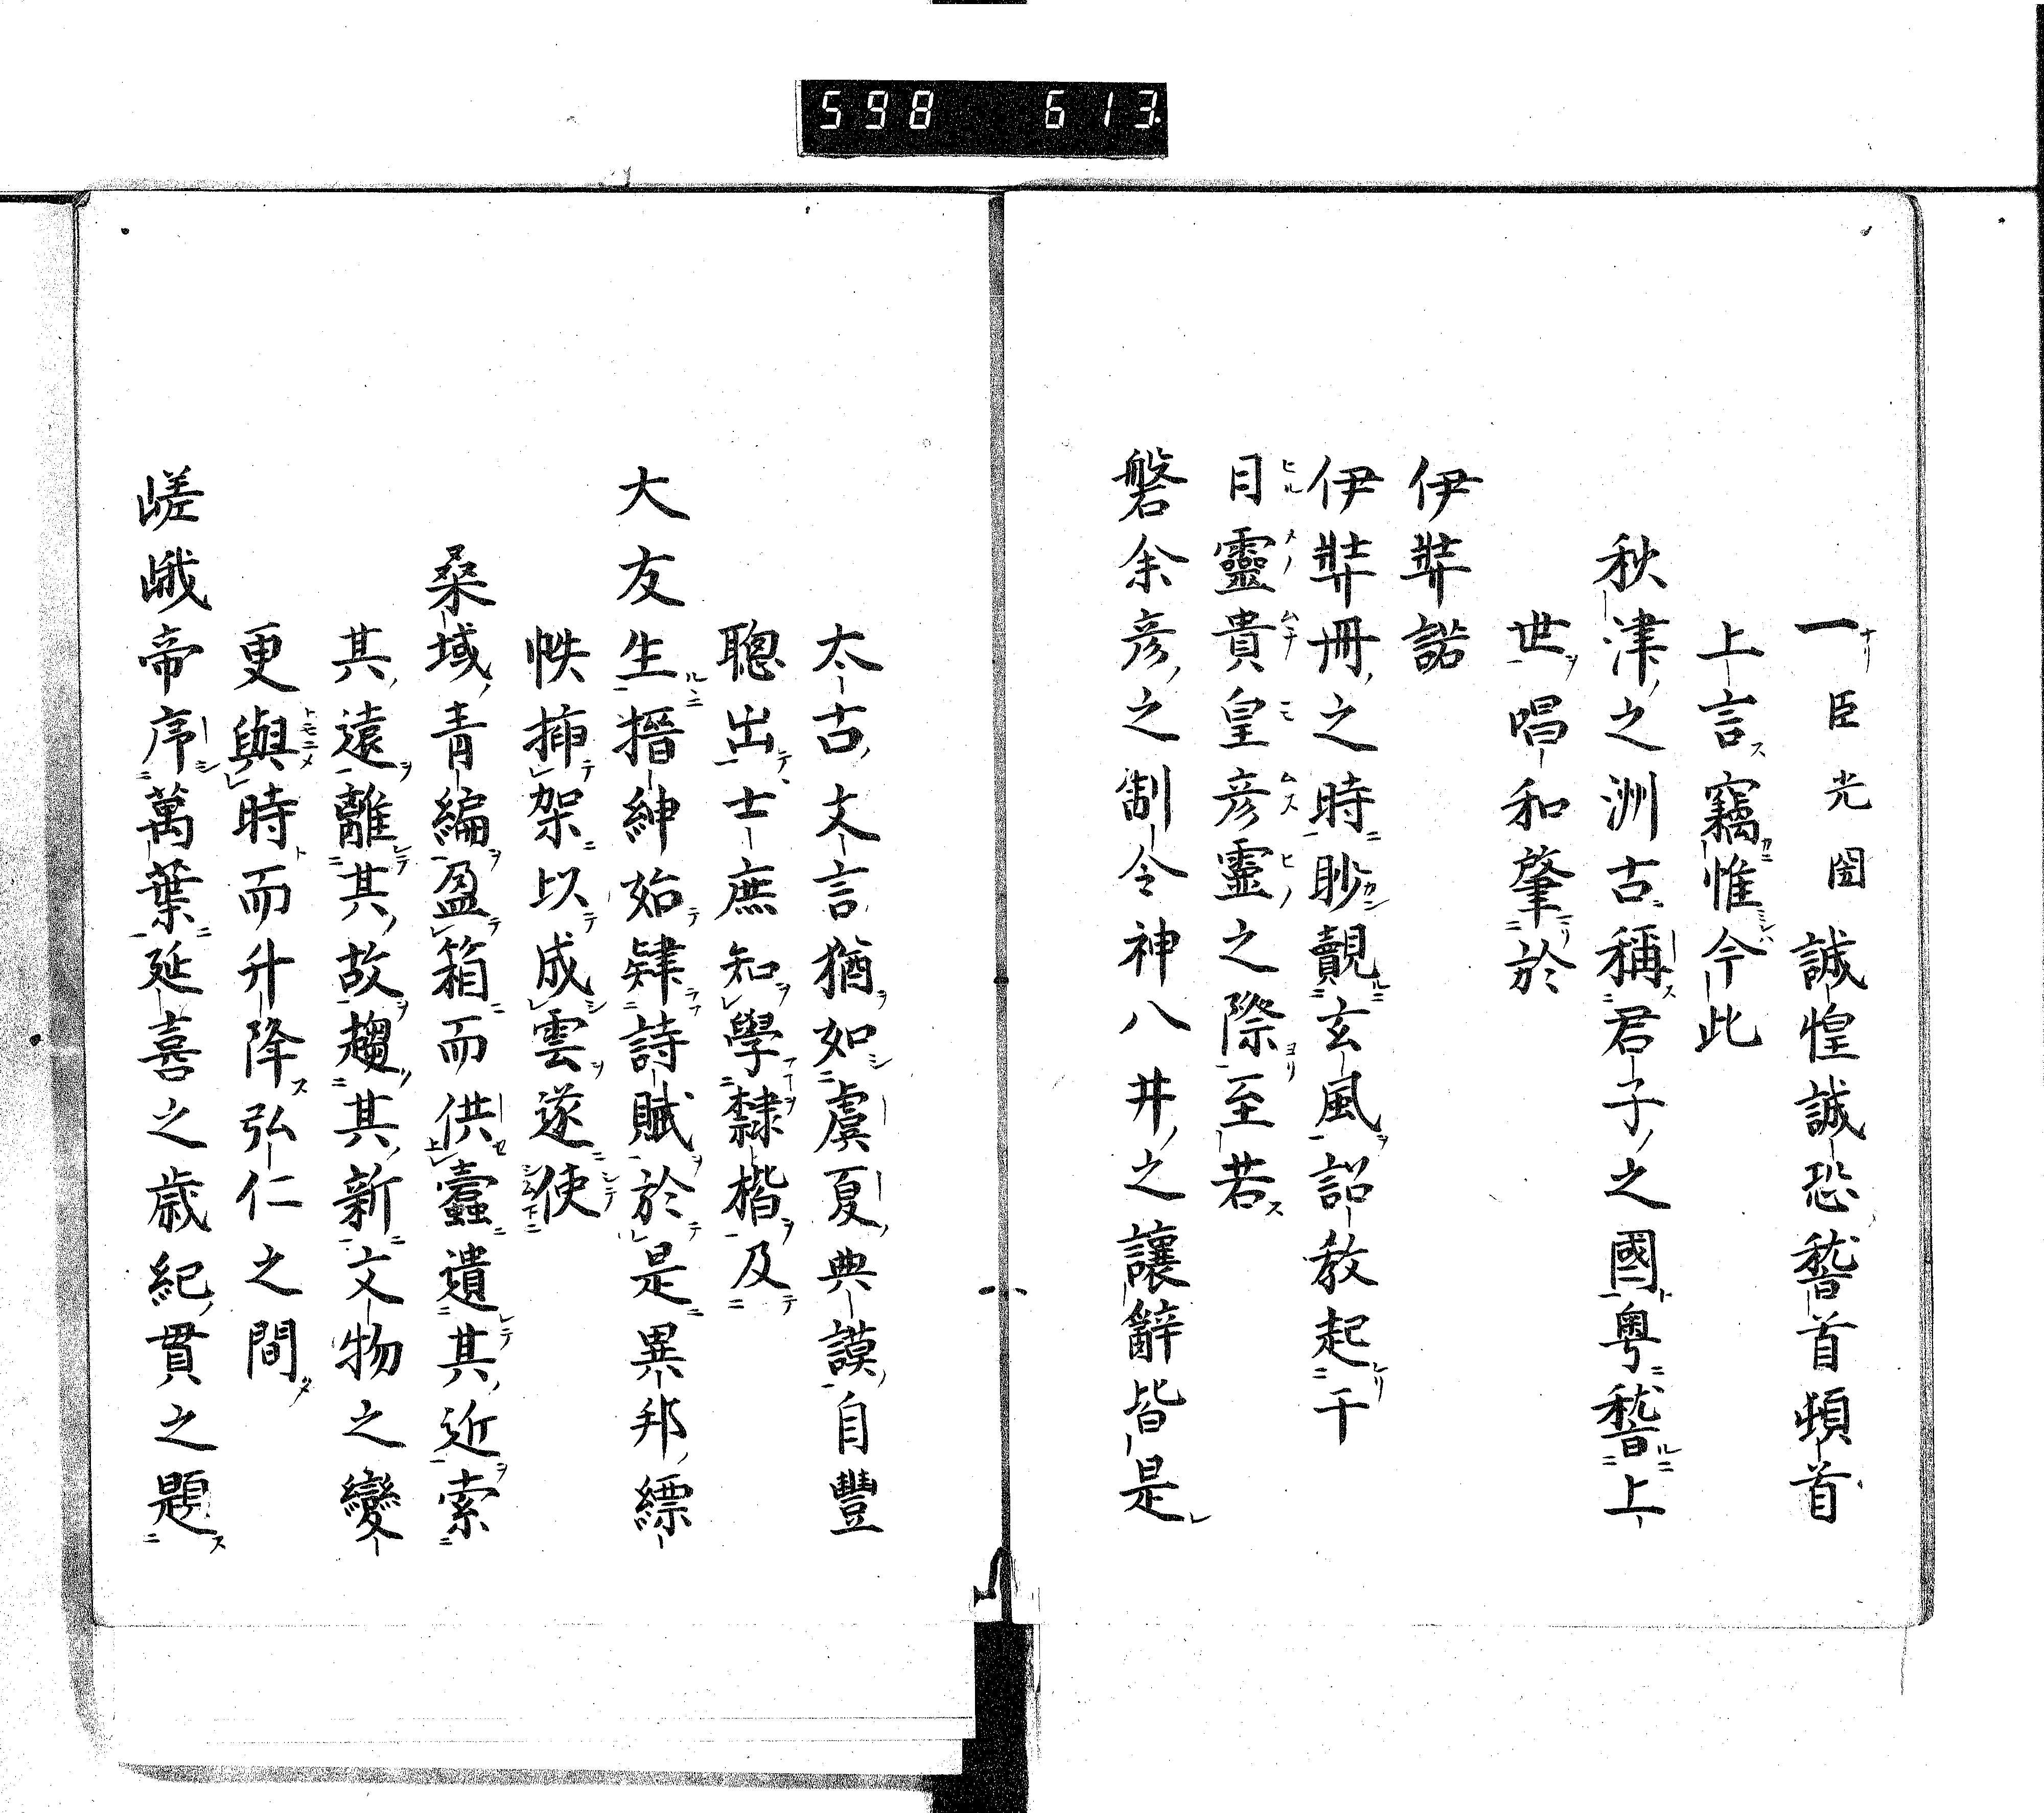 598 613.
一臣光圀誠惶誠恐稽首頓首
上言竊惟今此
秋津之洲古稱君子之國粤稽上
世唱和肇於
伊弉諾
伊弉冊之時眇覿玄風詔教起于
日靈貴皇彦靈之際至若
磐余彦之制令神八井之讓辭皆是
太古文言猶如虞夏典謨自豐
聰出士庶知學隷楷及
大友生搢紳始肄詩賦於是異邦縹
帙挿架以成雲遂使
桑域青編盈箱而供蠹遺其近索
其遠離其故趨其新文物之變
更與時而升降弘仁之間
嵯峨帝序萬葉延喜之歳紀貫之題